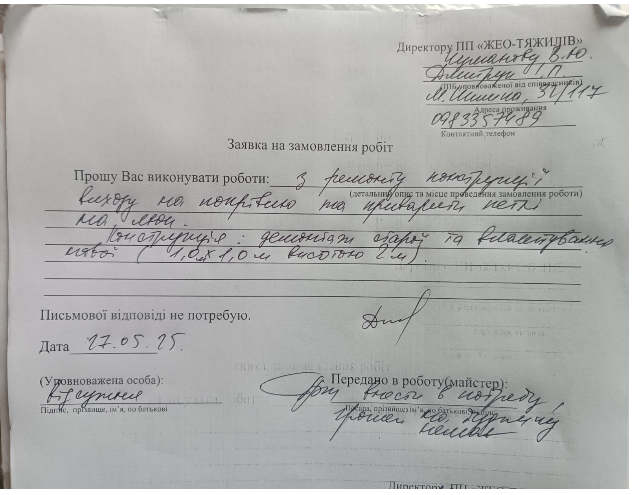 Директору ПП «ЖЕО-ТЯЖИЛІВ»
Шуманову В.Ю.
Дмитрук І.П.
(ПІБ уповноваженої від співвласників)
М. Шимка, 32/117
Адреса проживання
0983357489
Контактний телефон
Заявка на замовлення робіт
Прошу Вас виконувати роботи: з ремонту конструкції
(детальний опис та місце проведення замовлення роботи)
виходу на покрівлю та приварити петлі
на люк.
Конструкція: демонтаж старої та влаштування
нової (1,0 х 1,0 м висотою 2 м).
Письмової відповіді не потребую.
Дата 17.05.25.
(Уповноважена особа):
Передано в роботу(майстер):
Відсутня
внести в потребу,
Підпис, прізвище, ім'я, по батькові
Посада, прізвище, ім'я, по батькові
грошей на будинку
немає